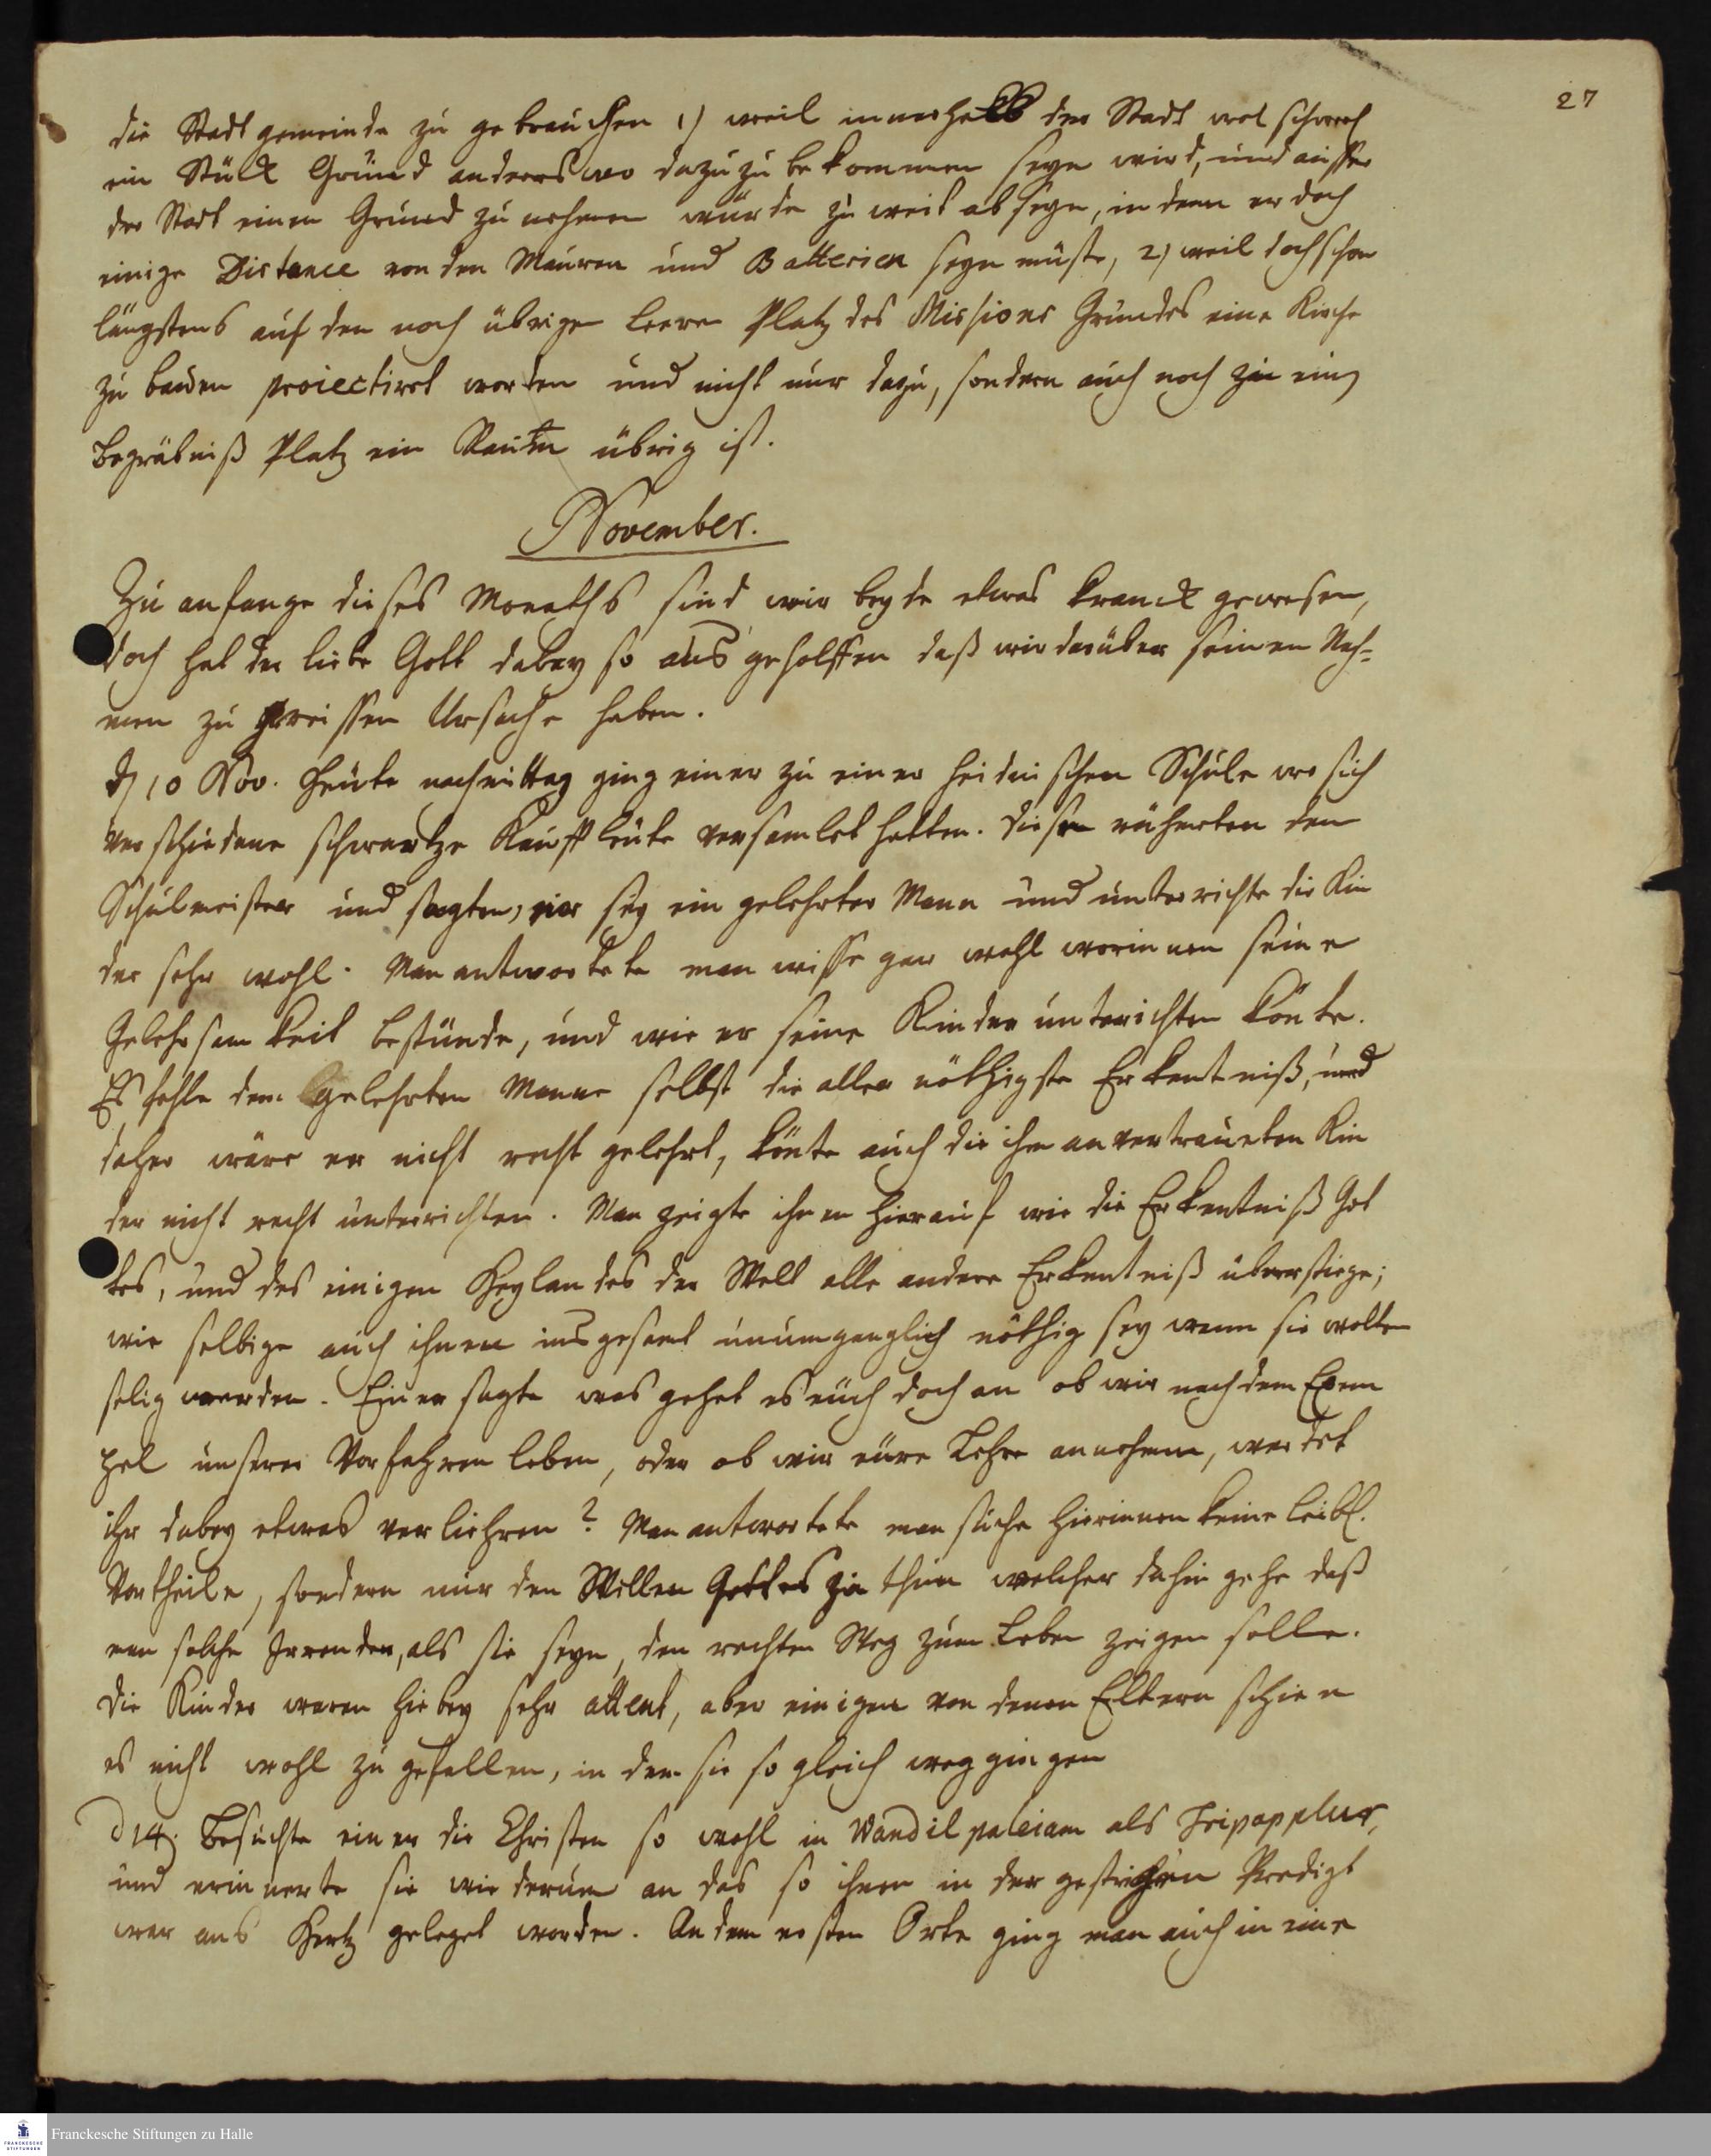 27
die Stadt gemeinde zu gebrauchen 1) weil innerhalb der Stadt wol schwerl
ein Stück Grund anderswo dazu zu bekommen seyn wird, und ausser
der Stadt einen Grund zu nehmen würde zu weit ab seyn, in dem er doch
einige Distance von den Mauren und Batterien seyn müste, 2) weil doch schon
längstens auf den noch übrigen leeren Platz des Missions Grundes eine Kirche
zu bauen proiectiret worden und nicht nur dazu, sondern auch noch zu ein
Begräbniß Platz ein Raum übrig ist.
November.
Zu anfange dieses Monaths sind wir beyde etwas kranck gewesen,
doch hat der liebe Gott dabey so aus geholffen daß wir darüber seinen Nah=
men zu preissen Ursache haben.
d 10 Nov. Heute nachmittag ging einer zu einer heidnischen Schule wo sich
verschiedene schwartze Kauffleute versamlet hatten. Diese rühmten den
Schulmeister und sagten, er sey ein gelehrter Mann und unterrichte die Kin
der sehr wohl. Man antwortete man wisse gar wohl worinnen seine
Gelehrsamkeit bestünde, und wie er seine Kinder unterichten könte.
Es fehle dem gelehrten Manne selbst die aller nöthigste Erkentniß, und
daher wäre er nicht recht gelehrt, könte auch die ihm anvertraueten Kin
der nicht recht unterrichten. Man zeigte ihnen hierauf wie die Erkentniß Got
tes, und des einigen Heylandes der Welt alle andere Erkentniß übersteige;
wie selbige auch ihnen ins gesamt unumganglich nöthig sey wenn sie wolten
selig werden. Einer sagte was gehet es euch doch an ob wir nach dem Exem
pel unserer Vorfahren leben, oder ob wir eure Lehre annehmen, werdet
ihr dabey etwas verliehren? Man antwortete man suche hierinnen keine leibl.
Vortheile, sondern nur den Willen Gottes zu thun welcher dahin gehe daß
man solche Irrenden, als sie seyn, den rechten Weg zum Leben zeigen solle.
Die Kinder waren hiebey sehr attent, aber einigen von denen Eltern schien
es nicht wohl zu gefallen, in dem sie so gleich weggingen
d 14. Besuchte einer die Christen so wohl in Wandilpaleiam als Tripapplur,
und erinnerte sie wiederum an das so ihnen in der gestrigen Predigt
war ans Hertz geleget worden. An dem ersten Orte ging man auch in eine
Franckesche Stiftungen zu Halle